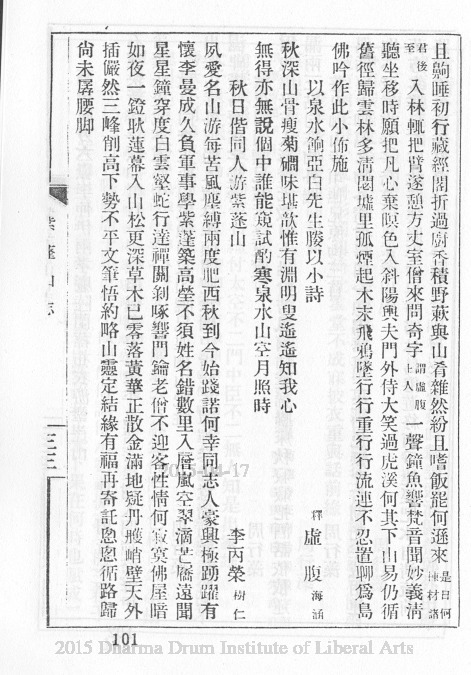 且齁睡初行藏經閣折過廚香積野蔌與山肴雜然紛且嗜飯罷何遜來是日何棟材諸
君後至入林輒把臂遂憩方丈室僧來問奇字謂虛腹上人一聲鐘魚響梵音聞妙義淸
聽坐移時願把凡心棄暝色入斜陽輿夫門外侍大笑過虎溪何其下山易仍循
舊徑歸雲林多淸閟墟里孤煙起木末飛鴉墜行行重行行流連不忍置聊爲島
佛吟作此小佈施
以泉水餉亞白先生媵以小詩
釋虛腹海涵
秋深山骨瘦菊磵味堪歆惟有淵明叟遙遙知我心
無得亦無說個中誰能窺試酌寒泉水山空月照時
秋日偕同人游紫蓬山
李丙榮樹仁
夙愛名山游每苦風塵縛兩度肥西秋到今始踐諾何幸同志人豪興極踴躍有
懷李曼成久負軍事學紫蓬築高塋不須姓名錯數里入層嵐空翠滴芒屩遠聞
星星鐘穿度白雲壑蛇行達禪關剝啄響門鑰老僧不迎客性情何寂寞佛屋暗
如夜一鐙耿蓮幕入山松更深草木已零落黃華正散金滿地疑丹雘峭壁天外
插儼然三峰削高下勢不平文筆悟約略山靈定結緣有福再寄託悤悤循路歸
尙未孱腰脚
紫蓬山志
三三
101
2015 Dharma Drum Institute of Liberal Arts